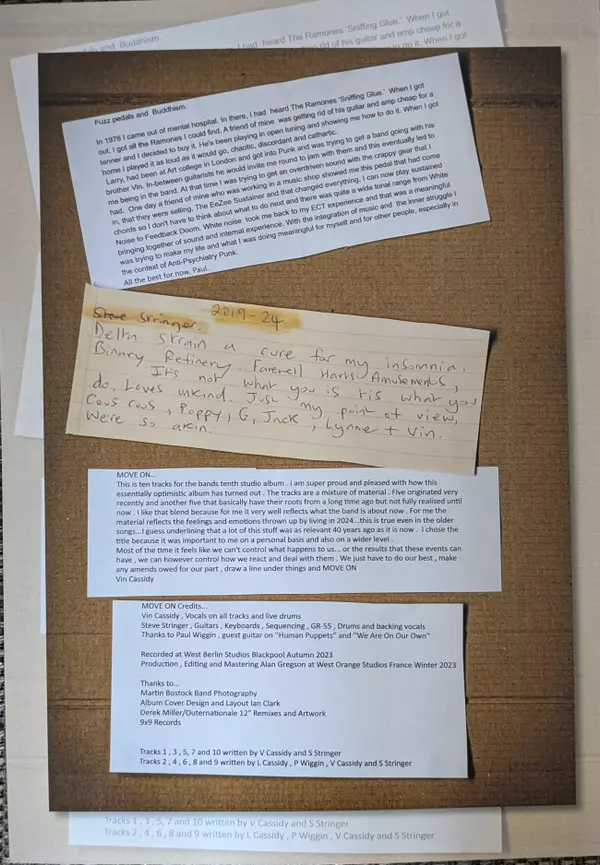 als and Buddhism.
I had heard The Ramones
When I got
rid of his guitar and amp cheap for a
to do it. When I got
Fuzz pedals and Buddhism.
In 1976 I came out of mental hospital. In there, I had heard The Ramones 'Sniffing Glue.' When I got
out, I got all the Ramones I could find. A friend of mine was getting rid of his guitar and amp cheap for a
tenner and I decided to buy it. He's been playing in open tuning and showing me how to do it. When I got
home I played it as loud as it would go, chaotic, discordant and cathartic.
Larry, had been at Art college in London and got into Punk and was trying to get a band going with his
brother Vin. In-between guitarists he would invite me round to jam with them and this eventually led to
me being in the band. At that time I was trying to get an overdriven sound with the crappy gear that I
had. One day a friend of mine who was working in a music shop showed me this pedal that had come
in, that they were selling. The EeZee Sustainer and that changed everything, I can now play sustained
chords so I don't have to think about what to do next and there was quite a wide tonal range from White
Noise to Feedback Doom. White noise took me back to my ECT experience and that was a meaningful
bringing together of sound and internal experience. With the integration of music and the inner struggle I
was trying to make my life and what I was doing meaningful for myself and for other people, especially in
the context of Anti-Psychiatry Punk.
All the best for now, Paul.
Steve Stringer. 2019-24
Delta strain a cure for my insomnia.
Binary Refinery. Farewell Harts Amusements,
Its not what you is tis what you
do. Loves unkind. Just my point of view,
Cous cous, Poppy, G, Jack, Lynne + Vin.
Were so akin.
MOVE ON...
This is ten tracks for the bands tenth studio album . I am super proud and pleased with how this
essentially optimistic album has turned out . The tracks are a mixture of material . Five originated very
recently and another five that basically have their roots from a long time ago but not fully realised until
now . I like that blend because for me it very well reflects what the band is about now . For me the
material reflects the feelings and emotions thrown up by living in 2024...this is true even in the older
songs...I guess underlining that a lot of this stuff was as relevant 40 years ago as it is now . I chose the
title because it was important to me on a personal basis and also on a wider level .
Most of the time it feels like we can't control what happens to us... or the results that these events can
have , we can however control how we react and deal with them . We just have to do our best , make
any amends owed for our part , draw a line under things and MOVE ON
Vin Cassidy
MOVE ON Credits...
Vin Cassidy , Vocals on all tracks and live drums
Steve Stringer , Guitars , Keyboards , Sequencing , GR-55 , Drums and backing vocals
Thanks to Paul Wiggin , guest guitar on "Human Puppets" and "We Are On Our Own"
Recorded at West Berlin Studios Blackpool Autumn 2023
Production , Editing and Mastering Alan Gregson at West Orange Studios France Winter 2023
Thanks to...
Martin Bostock Band Photography
Album Cover Design and Layout Ian Clark
Derek Miller/Outernationale 12" Remixes and Artwork
9x9 Records
Tracks 1 , 3 , 5, 7 and 10 written by V Cassidy and S Stringer
Tracks 2 , 4 , 6 , 8 and 9 written by L Cassidy , P Wiggin , V Cassidy and S Stringer
Tracks 1 , 3 , 5, 7 and 10 written by V Cassidy and S Stringer
Tracks 2 , 4 , 6 , 8 and 9 written by L Cassidy , P Wiggin , V Cassidy and S Stringer